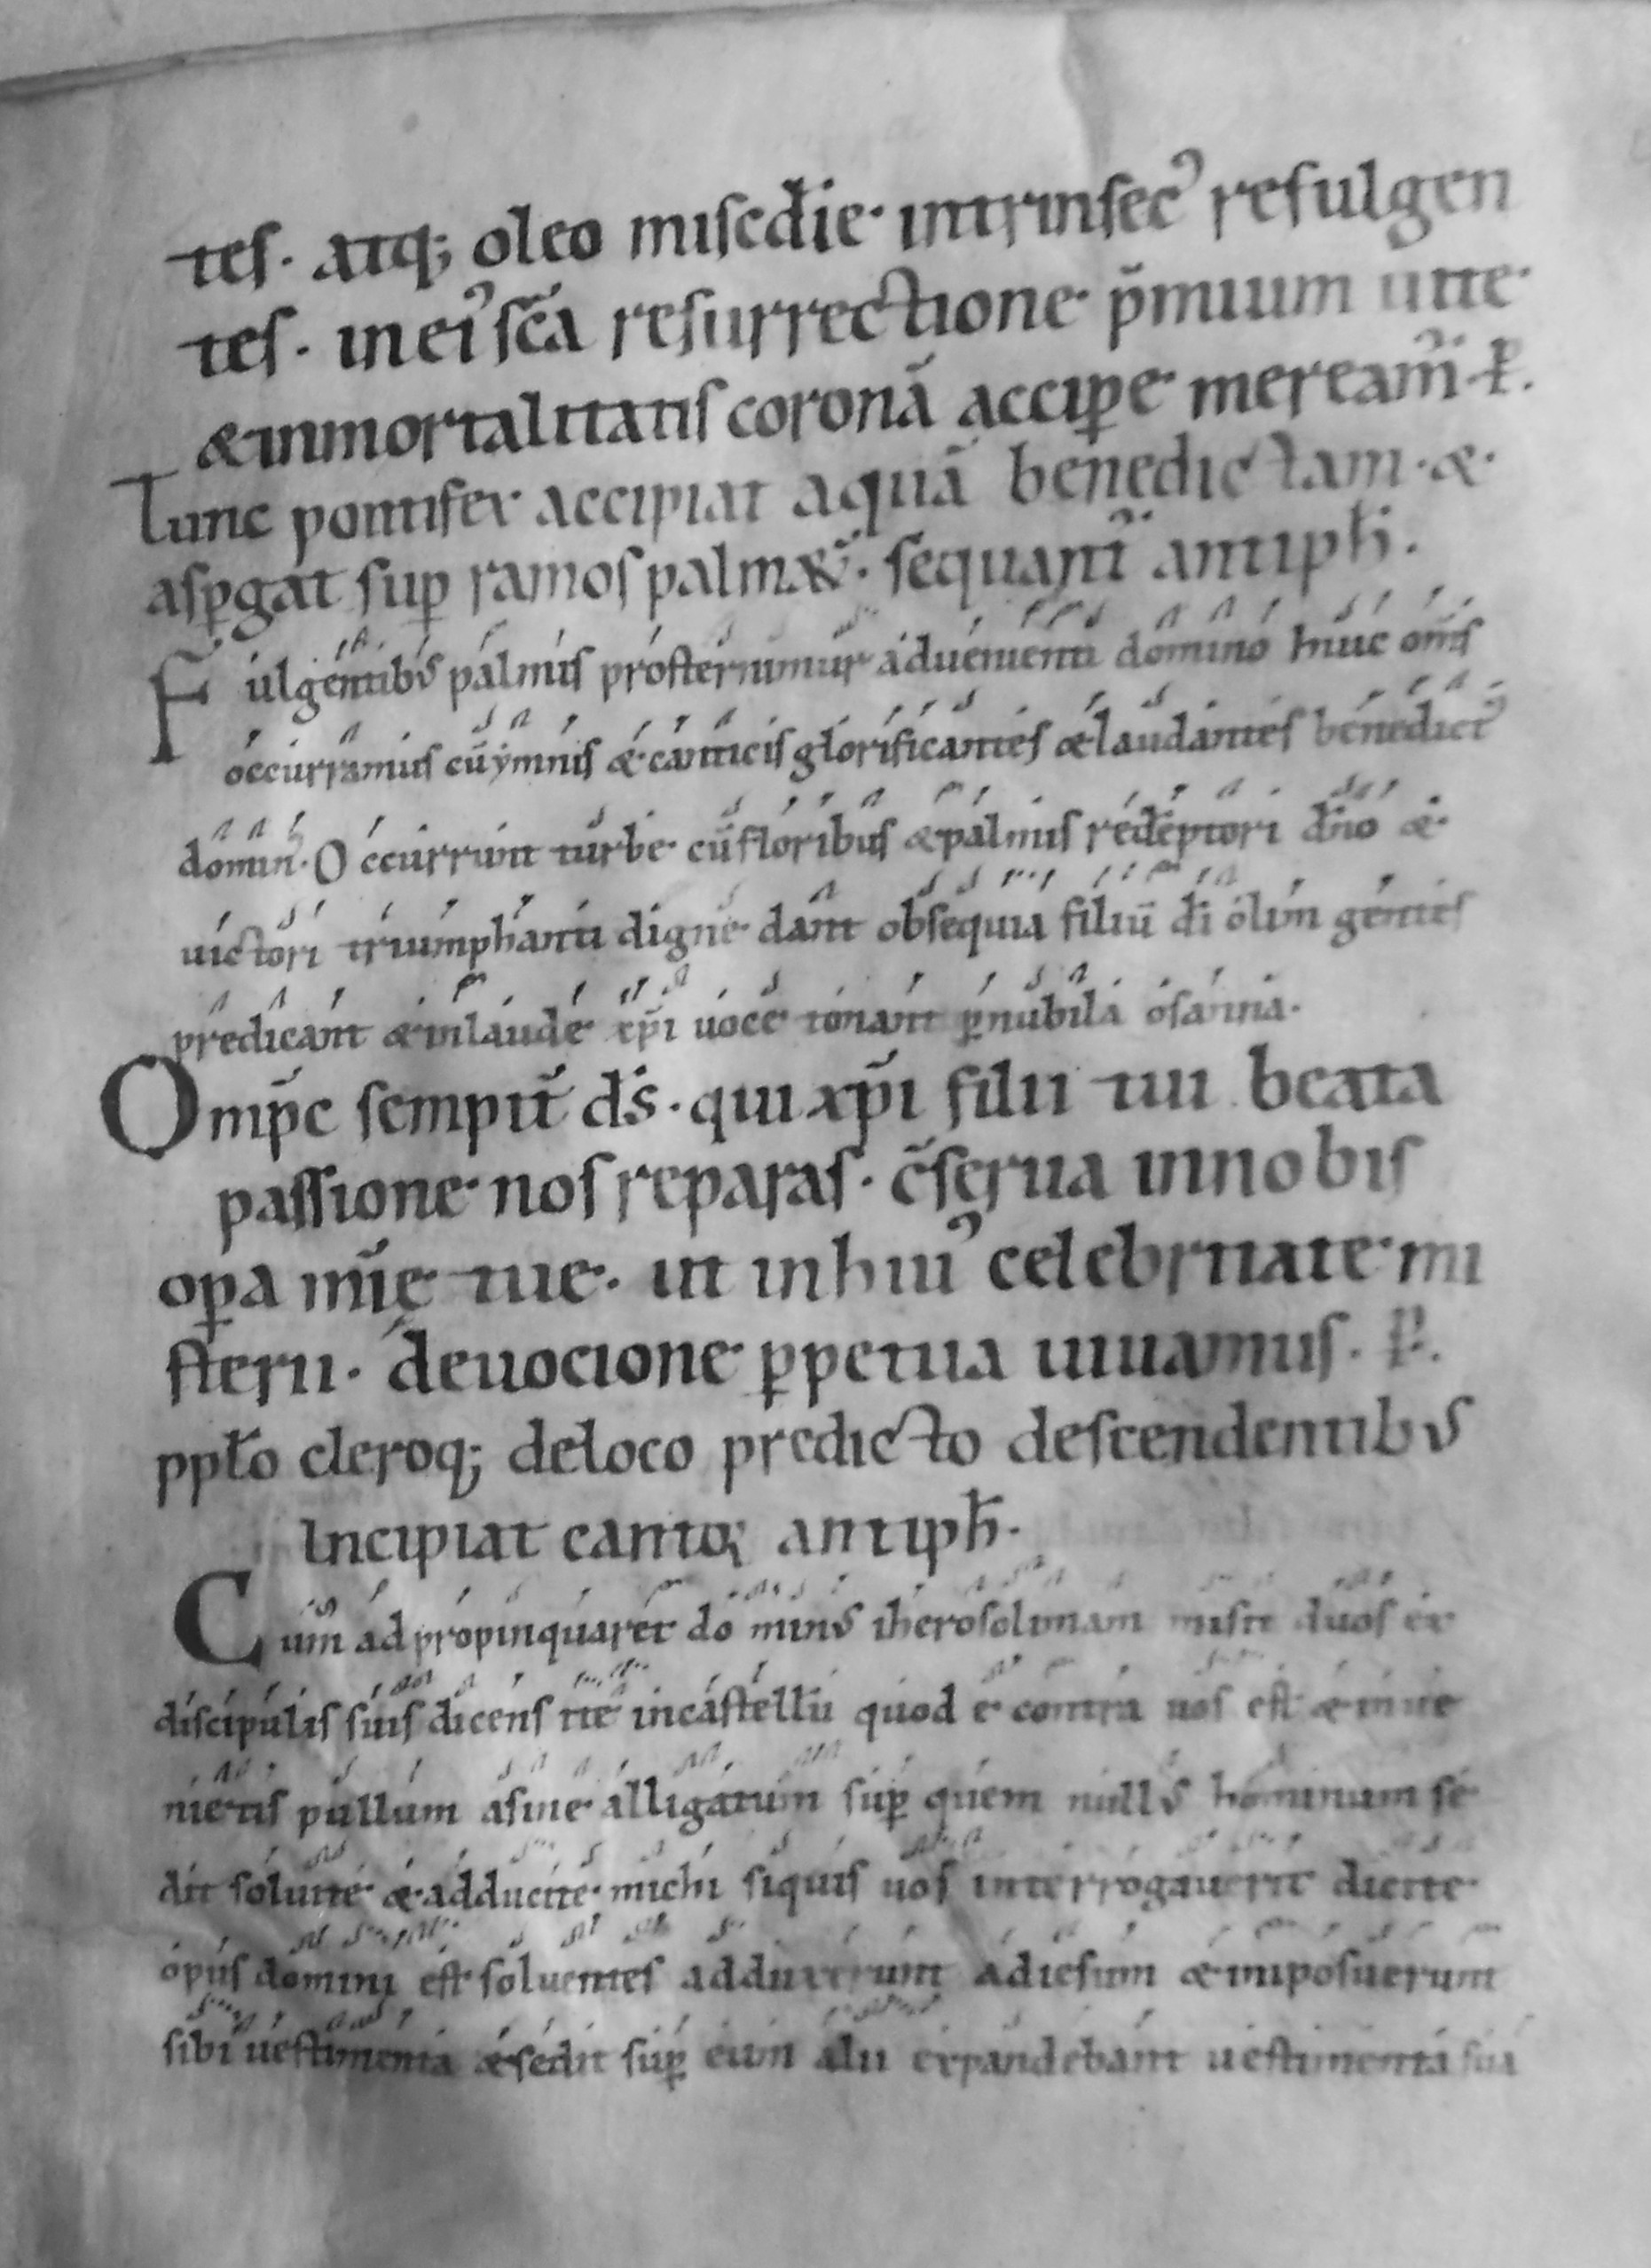 tes. atq; oleo miscd̄ie intrinsecꝰ refulgen
tes. in eiꝰ sc̄a resurrectione p̄mium uite
& inmortalitatis coronā accip̱e meream̄. P̄.
Tunc pontifex accipiat aquā benedictam. &
asp̱gat sup̱ ramos palmaꝝ. sequant̄ antiph̄.
Fulgentibus palmis prosternimur aduenienti domino huic om̄s
occurramus cū ymnis & canticis glorificantes & laudantes benedictꝰ
domin̄. Occurrunt turbe cū floribus & palmis redēptori dn̄o &
uictori triumphanti digne dant obsequia filiū dī olim gentes
predicant & in laude xp̄i uoce tonant p̱ nubila osanna.
Omp̄e sempit̄ ds̄. qui xp̄i filii tui beata
passione nos reparas. c̄serua in nobis
op̱a mīę tue. ut in huiꝰ celebritate mi
sterii. deuocione p̱petua uiuamus. P̄.
pplo cleroq; de loco predicto descendentibus
Incipiat cantoꝛ antiph̄.
Cum adpropinquaret dominus iherosolimam misit duos ex
discipulis suis dicens ite in castellū quod ē contra uos est & inue
nietis pullum asine alligatum sup̱ quem nullus hominum se
dit soluite & adducite michi siquis uos interrogauerit dicite
opus domini est soluentes adduxerunt ad iesum & imposuerunt
sibi uestimenta & sedit sup̱ eum alii expandebant uestimenta sua